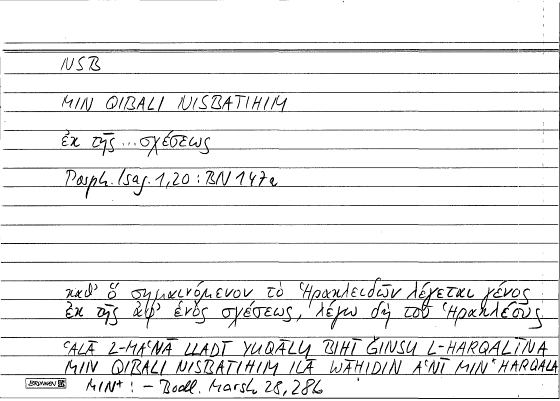 NSB
MIN QIBALI NISBATIHIM
ἐκ τῆς ... σχέσεως
Porph. Isag. 1,20 : BN 147a
καθ' ὃ σημαινόμενον τὸ Ἡρακλειδῶν λέγεται γένος
ἐκ τῆς ἀφ' ἑνὸς σχέσεως, λέγω δὴ τοῦ Ἡρακλέους
ʿALĀ L-MAʿNĀ LLADĪ YUQĀLU BIHĪ ǦINSU L-HARQALĪNA
MIN QIBALI NISBATIHIM ILĀ WĀHIDIN AʿNĪ MIN* HARQALA
MIN* : – Bodl. Marsh 28, 28b